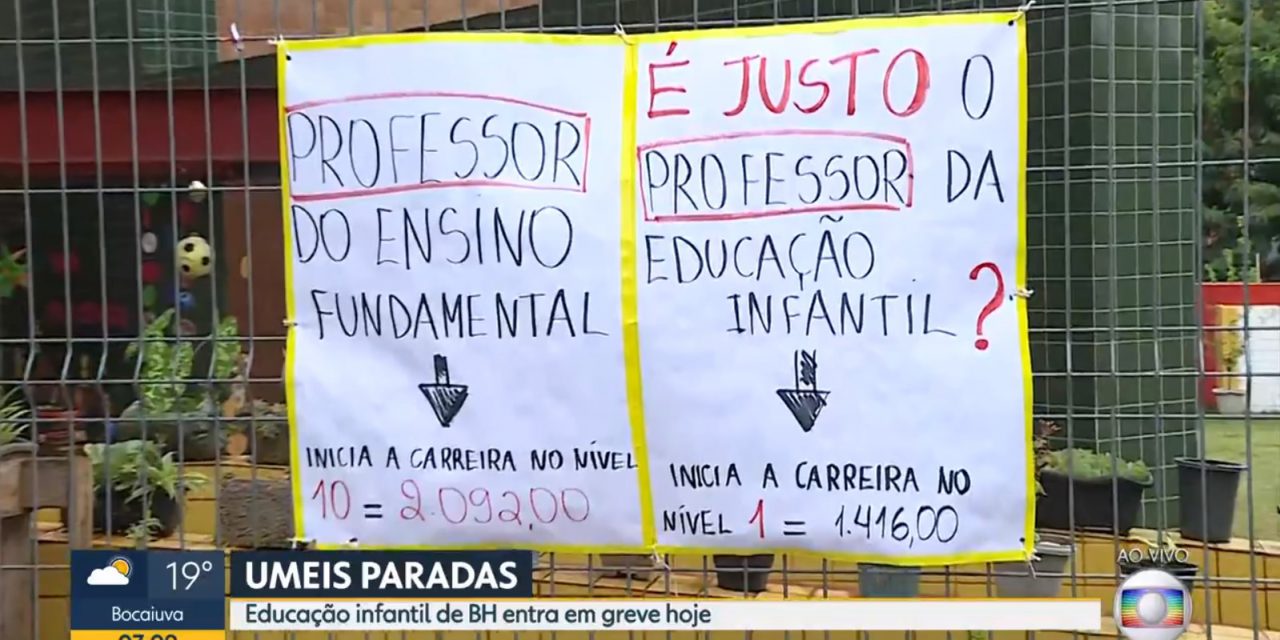 PROFESSOR
DO ENSINO
FUNDAMENTAL
INICIA A CARREIRA NO NÍVEL
10 = 2.092,00
É JUSTO O
PROFESSOR DA
EDUCAÇÃO
INFANTIL ?
INICIA A CARREIRA NO
NÍVEL 1 = 1.416,00
AO VIVO
19°
Bocaiuva
UMEIS PARADAS
Educação infantil de BH entra em greve hoje